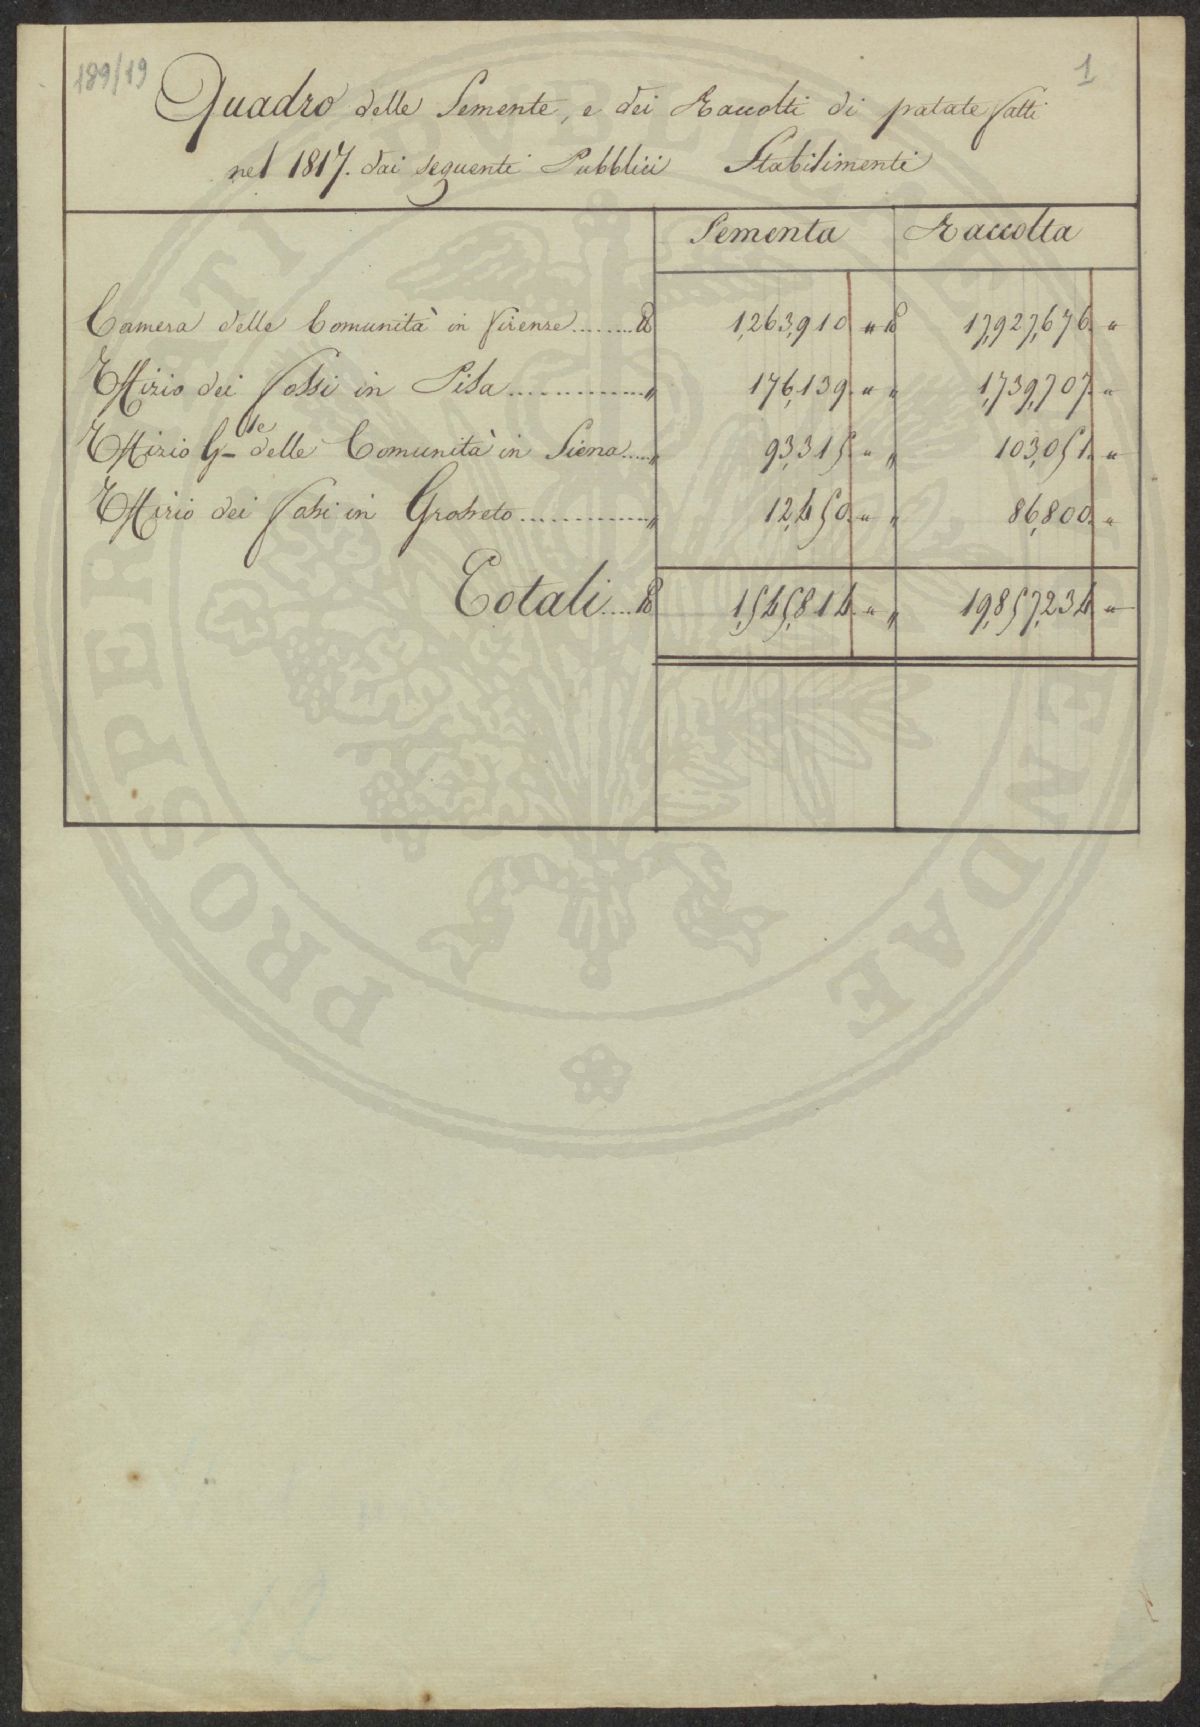 189/19
1
Quadro delle Semente, e dei Raccolti di patate fatti
nel 1817. dai seguenti Pubblici Stabilimenti
Sementa Raccolta
Camera delle Comunità in Firenze ........ ℔ 1,263,910 „ ℔ 17,927,676. „
Uffizio dei Fossi in Pisa .............. „ 176,139. „ „ 1,739,707. „
Uffizio G.le delle Comunità in Siena ..... „ 93,315. „ „ 103,051. „
Uffizio dei Fossi in Grosseto ............. „ 12,450. „ „ 86,800. „
Totali .... ℔ 1,545,814. „ „ 19,857,234 „
PROSPERITATI PUBLICAE AUGENDAE